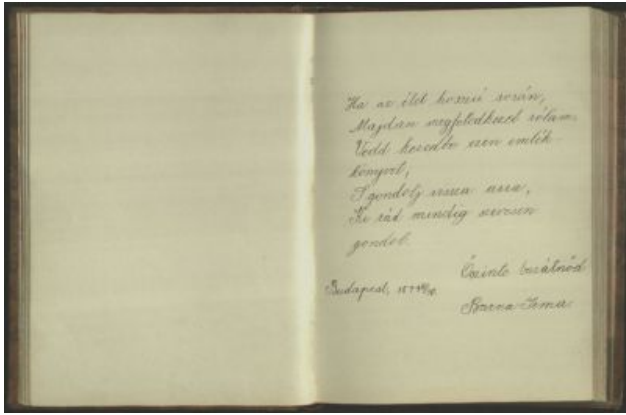 Ha az élet hosszú során,
Majdan megfeledkezel rólam,
Vedd kezedbe ezen emlék-
könyvet,
S gondolj vissza arra,
Ki rád mindig szivesen
gondol.
Őszinte barátnőd
Budapest,
Barna Irma